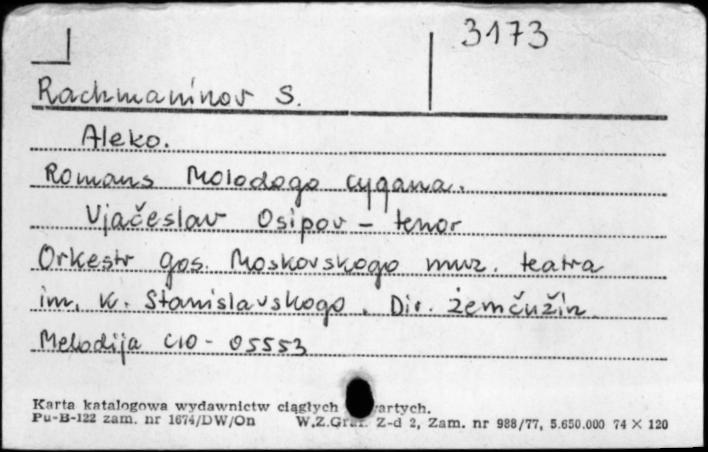 3173
Rachmaninov S.
Aleko.
Romans Molodogo cygana.
Vjačeslav Osipov - tenor
Orkestr gos. Moskovskogo muz. teatra
im. K. Stanislavskogo. Dir. Žemčužin
Melodija C10 - 05553
Karta katalogowa wydawnictw ciągłych
Pu-B-122 zam. nr 1674/DW/On W.Z.Graf. Z-d 2, Zam. nr 988/77, 5.650.000 74 X 120